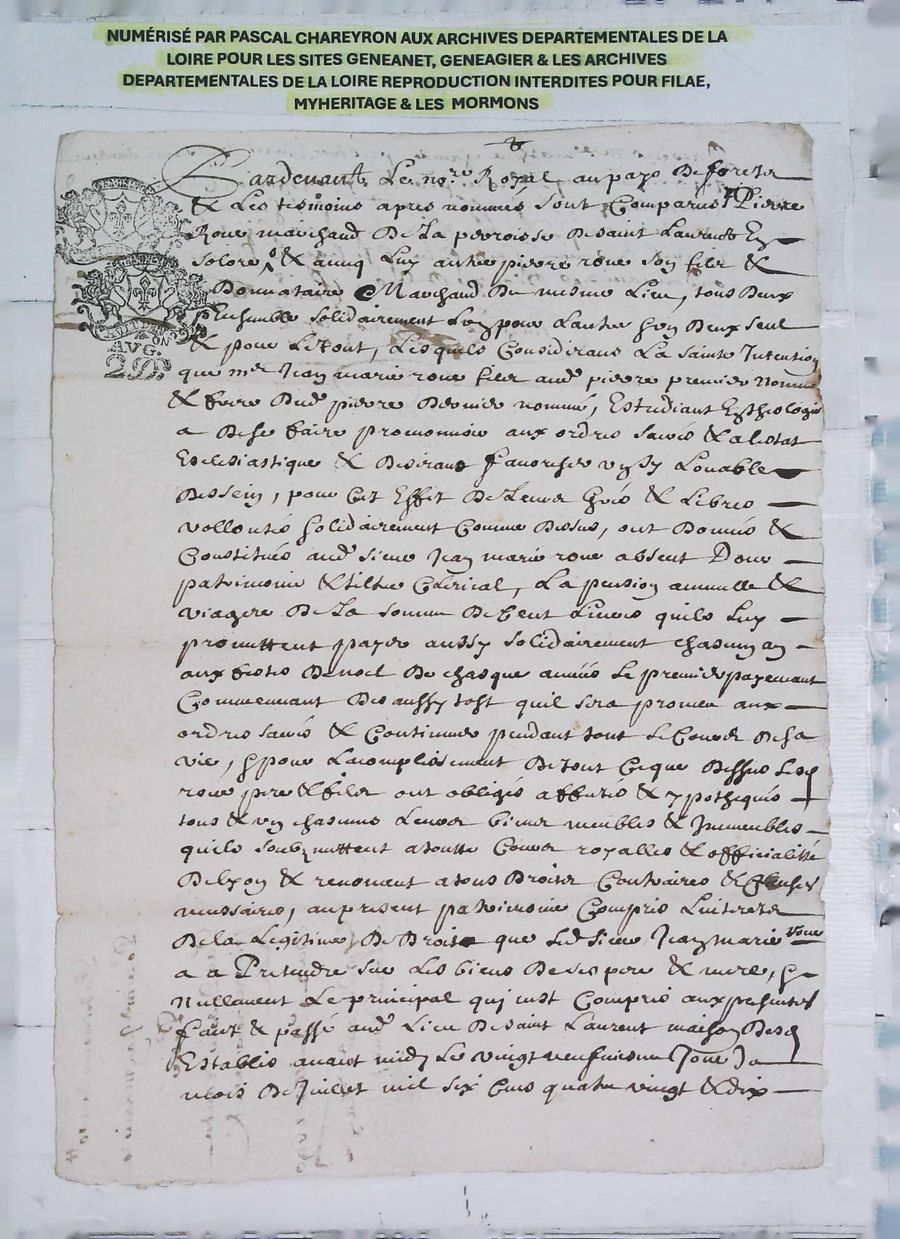 NUMÉRISÉ PAR PASCAL CHAREYRON AUX ARCHIVES DEPARTEMENTALES DE LA
LOIRE POUR LES SITES GENEANET, GENEAGIER & LES ARCHIVES
DEPARTEMENTALES DE LA LOIRE REPRODUCTION INTERDITES POUR FILAE,
MYHERITAGE & LES MORMONS
Pardevant Le no.re Royal au pays De forests
& Les tesmoins apres nommés sont Comparus Pierre
Roue marchand De La perroisse De saint Laurent En
Solore & aveq Luy autre pierre roue son filz &
Donnataire Marchand Du mesme Lieu, tous Deux
Ensemble solidairement L'un pour L'autre Deux seul
& pour Le tout, Lesquels Considerans La sainte Intention
que m.re Jean marie roue filz aud. pierre premier nommé
& frere Dud. pierre Dernier nommé, Estudiant En theologie
a De se faire promouvoir aux ordres sacrés & a lestat
Eclesiastique & Desirans favoriser un sy Louable
Dessein, pour Cet Effet De Leurs grés & Libres
vollontés solidairement Comme Dessus, ont Donné &
Constitués aud. sieur Jean marie roue absent Pour
patrimoine & tiltre Clerical, La pension annuelle &
viagere De La somme De Cent Livres quils Luy
promettent payer aussy solidairement chascun an
aux festes De noel De chasque année Le premier payement
Commencant Des aussy tost quil sera promeu aux
ordres sacrés & Continuer pendant tout Le Cours De sa
vie, & pour Lacomplissement De tout Ce que Dessus Lesd.
roue pere & filz ont obligés affectés & ypothequés
tous & un chascuns Leurs biens meubles & Immeubles
quils soubzmettent a toutte Cours royalles & officialitté
De Lyon & renoncent a tous Droits Contraires & Clauses
necessaires, au present patrimoine Compris Linterest
De la Legitime De Droit que Led. sieur Jean marie roue
a a Pretendre sur Les biens De ses pere & mere, &
Nullement Le principal qui nest Compris aux presentes
faict & passé aud. Lieu De saint Laurent maison Desd.
Establis avant midy Le vingt neufviesme Jour Du
mois De Juillet mil six Cens quatre vingt & dix
AVG.